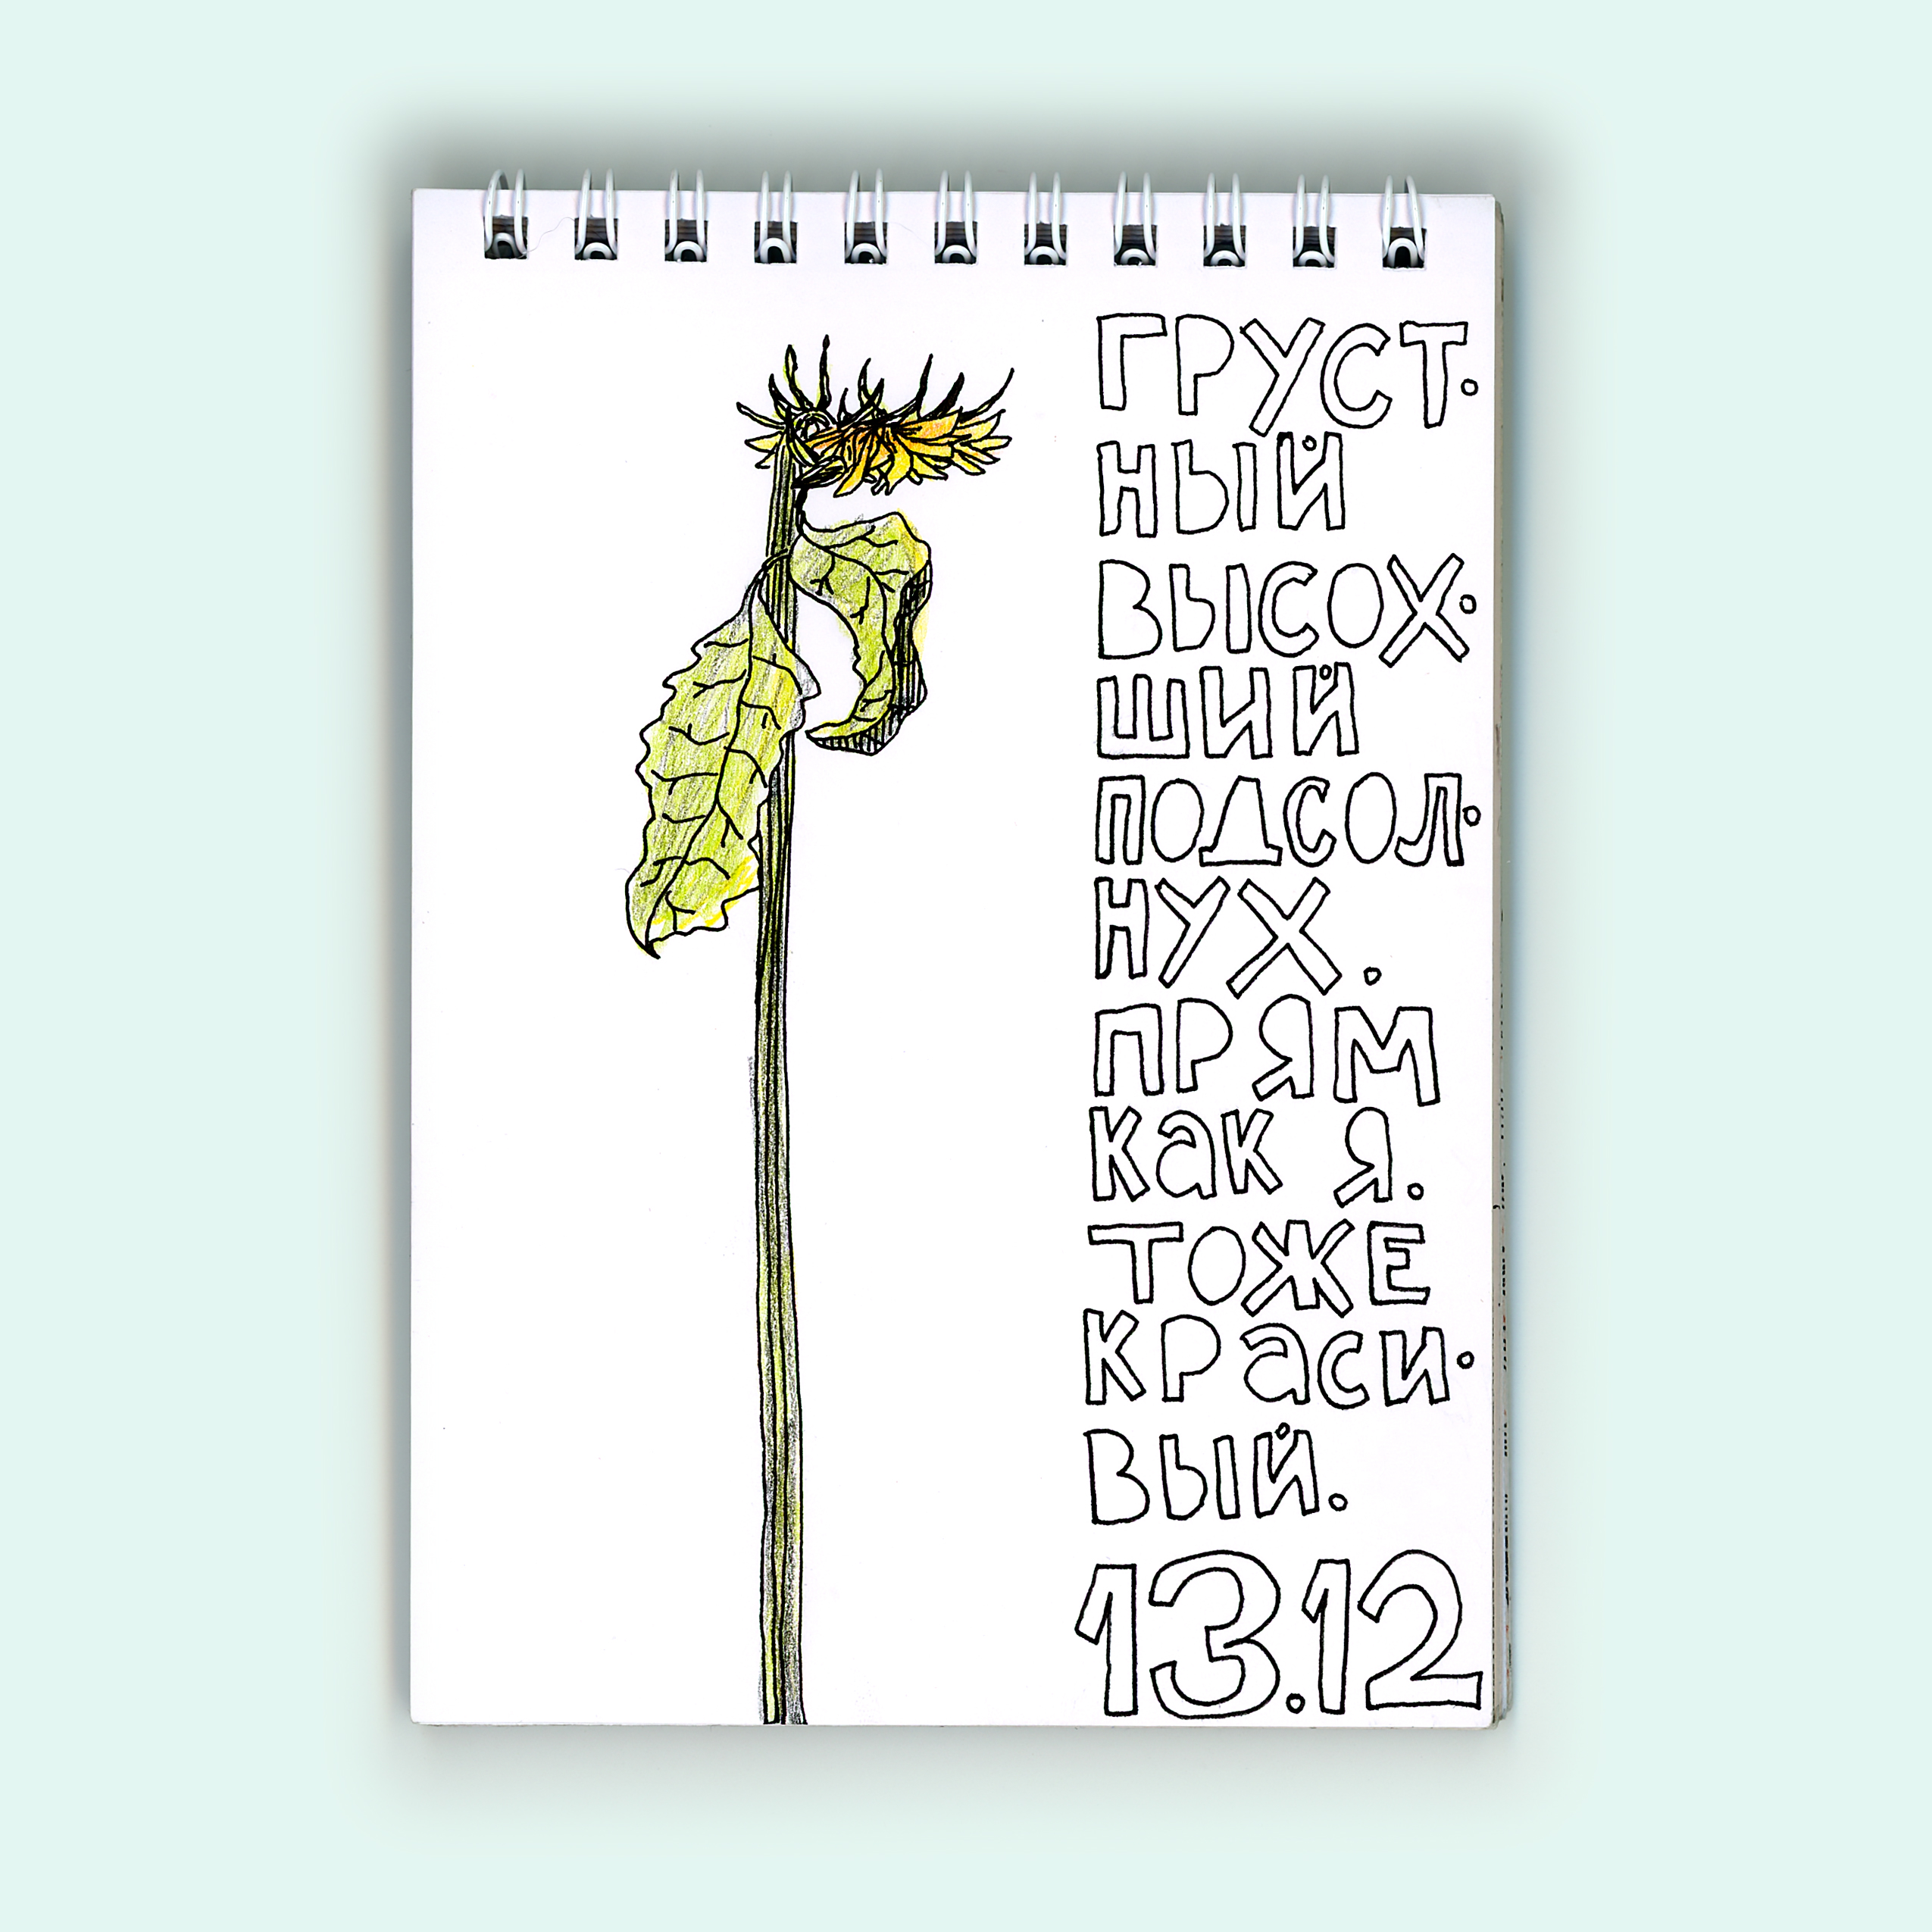 ГРУСТ·
НЫЙ
ВЫСОХ·
ШИЙ
ПОДСОЛ·
НУХ.
ПРЯМ
КАК Я.
ТОЖЕ
КРАСИ·
ВЫЙ.
13.12